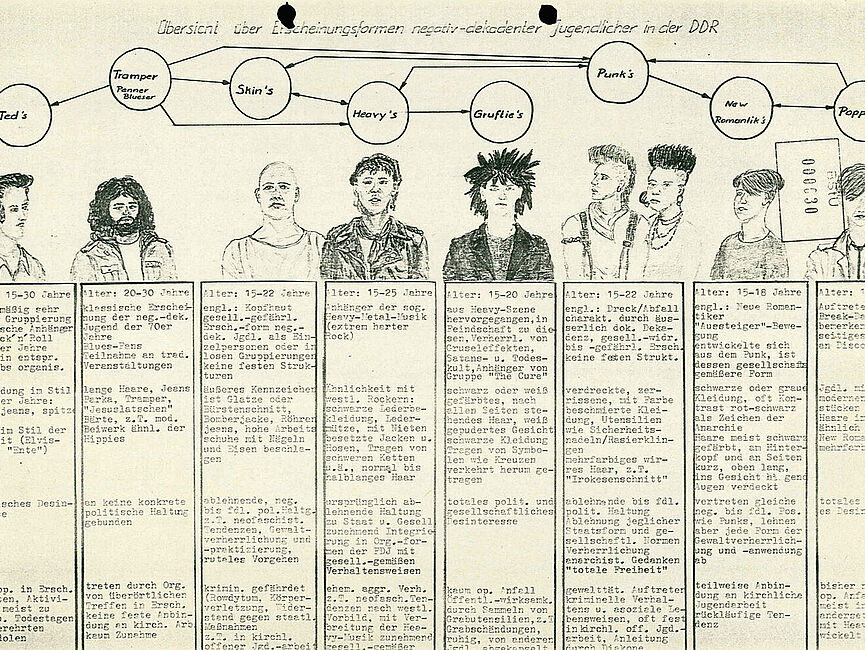 Übersicht über Erscheinungsformen negativ-dekadenter Jugendlicher in der DDR
Ted's
Tramper
Penner
Blueser
Skin's
Heavy's
Gruftie's
Punk's
New
Romantik's
Popp
000030
BStU
15-30 Jahre
mäßig sehr
Gruppierung
sche Anhänger
ck'n'Roll
er Jahre
in entspr.
bs organis.
dung in Stil
er Jahre:
jeans, spitze
im Stil der
it (Elvis-
"Ente")
sches Desin-
se
op. in Ersch.
ten, Aktivi-
meist zu
u. Todestagen
erehrten
dolen
Alter: 20-30 Jahre
klassische Erschei-
nung der neg.-dek.
Jugend der 70er
Jahre
Blues-Fans
Teilnahme an trad.
Veranstaltungen
lange Haare, Jeans
Parka, Tramper,
"Jesuslatschen"
Bärte, z.T. mod.
Beiwerk ähnl. der
Hippies
an keine konkrete
politische Haltung
gebunden
treten durch Org.
von überörtlichen
Treffen in Ersch.
keine feste Anbin-
dung an kirchl. Arb.
kaum Zunahme
Alter: 15-22 Jahre
engl.: Kopfhaut
gesell.-gefährl.
Ersch.-form neg.-
dek. Jgdl. als Ein-
zelpersonen oder in
losen Gruppierungen
keine festen Struk-
turen
äußeres Kennzeichen
ist Glatze oder
Bürstenschnitt,
Bomberjacke, Röhren
jeans, hohe Arbeits
schuhe mit Nägeln
und Eisen beschla-
gen
ablehnende, neg.
bis fdl. pol.Haltg.
z.T. neofaschist.
Tendenzen, Gewalt-
verherrlichung und
-praktizierung,
brutales Vorgehen
krimin. gefährdet
(Rowdytum, Körper-
verletzung, Wider-
stand gegen staatl.
Maßnahmen
z.T. in kirchl.
offener Jgd.-arbeit
Alter: 15-25 Jahre
Anhänger der sog.
Heavy-Metal-Musik
(extrem harter
Rock)
Ähnlichkeit mit
westl. Rockern:
schwarze Lederbe-
kleidung, Leder-
mütze, mit Nieten
besetzte Jacken u.
Hosen, Tragen von
schweren Ketten
u.ä., normal bis
halblanges Haar
ursprünglich ab-
lehnende Haltung
zu Staat u. Gesell.
zunehmend Integrie-
rung in Org.-for-
men der FDJ mit
gesell.-gemäßen
Verhaltensweisen
ehem. aggr. Verh.
z.T. neofasch.Ten-
denzen nach westl.
Vorbild, mit Ver-
breitung der Hea-
vy-Musik zunehmend
gesell.-gemäßer
Alter: 15-20 Jahre
aus Heavy-Szene
hervorgegangen, in
Feindschaft zu die-
sen,Verherrl. von
Gruseleffekten,
Satans- u. Todes-
kult,Anhänger von
Gruppe "The Cure"
schwarz oder weiß
gefärbtes, nach
allen Seiten ste-
hendes Haar, weiß
gepudertes Gesicht
schwarze Kleidung
Tragen von Symbo-
len wie Kreuzen
verkehrt herum ge-
tragen
totales polit. und
gesellschaftliches
Desinteresse
kaum op. Anfall
öffentl.-wirksamk.
durch Sammeln von
Grabutensilien,z.T.
Grabschändungen,
ruhig, von anderen
Jgdl. abgekapselt
Alter: 15-22 Jahre
engl.: Dreck/Abfall
charakt. durch äus-
serlich dok. Deka-
denz, gesell.-widr.
bis -gefährl. Ersch.
keine festen Strukt.
verdreckte, zer-
rissene, mit Farbe
beschmierte Klei-
dung, Utensilien
wie Sicherheits-
nadeln/Rasierklin-
gen
mehrfarbiges wir-
res Haar, z.T.
"Irokesenschnitt"
ablehnende bis fdl.
polit. Haltung
Ablehnung jeglicher
Staatsform und ge-
sellschaftl. Normen
Verherrlichung
anarchist. Gedanken
"totale Freiheit"
gewalttät. Auftreten
kriminelle Verhal-
tens u. asoziale Le-
bensweisen, oft fest
in kirchl. off. Jgd.-
arbeit, Anleitung
durch Diakone
Alter: 15-18 Jahre
engl.: Neue Roman-
tiker
"Aussteiger"-Bewe-
gung
entwickelte sich
aus dem Punk, ist
dessen gesellschafts
gemäßere Form
schwarze oder graue
Kleidung, oft Kon-
trast rot-schwarz
als Zeichen der
Anarchie
Haare meist schwarz
gefärbt, an Hinter-
kopf und an Seiten
kurz, oben lang,
ins Gesicht hä.gend
Augen verdeckt
vertreten gleiche
neg. bis fdl. Pos.
wie Punks, lehnen
aber jede Form der
Gewaltverherrlich-
ung und -anwendung
ab
teilweise Anbin-
dung an kirchliche
Jugendarbeit
rückläufige Ten-
denz
Alter:
Auftrete
Break-Da
bemerken
seitiges
an Disco
Jgdl. m
modernes
stücke
Haare i
ähnlich
New Roma
mehrfarb
totales
es Desin
bisher n
op. Anfa
anderse
mit Heav
wickelt